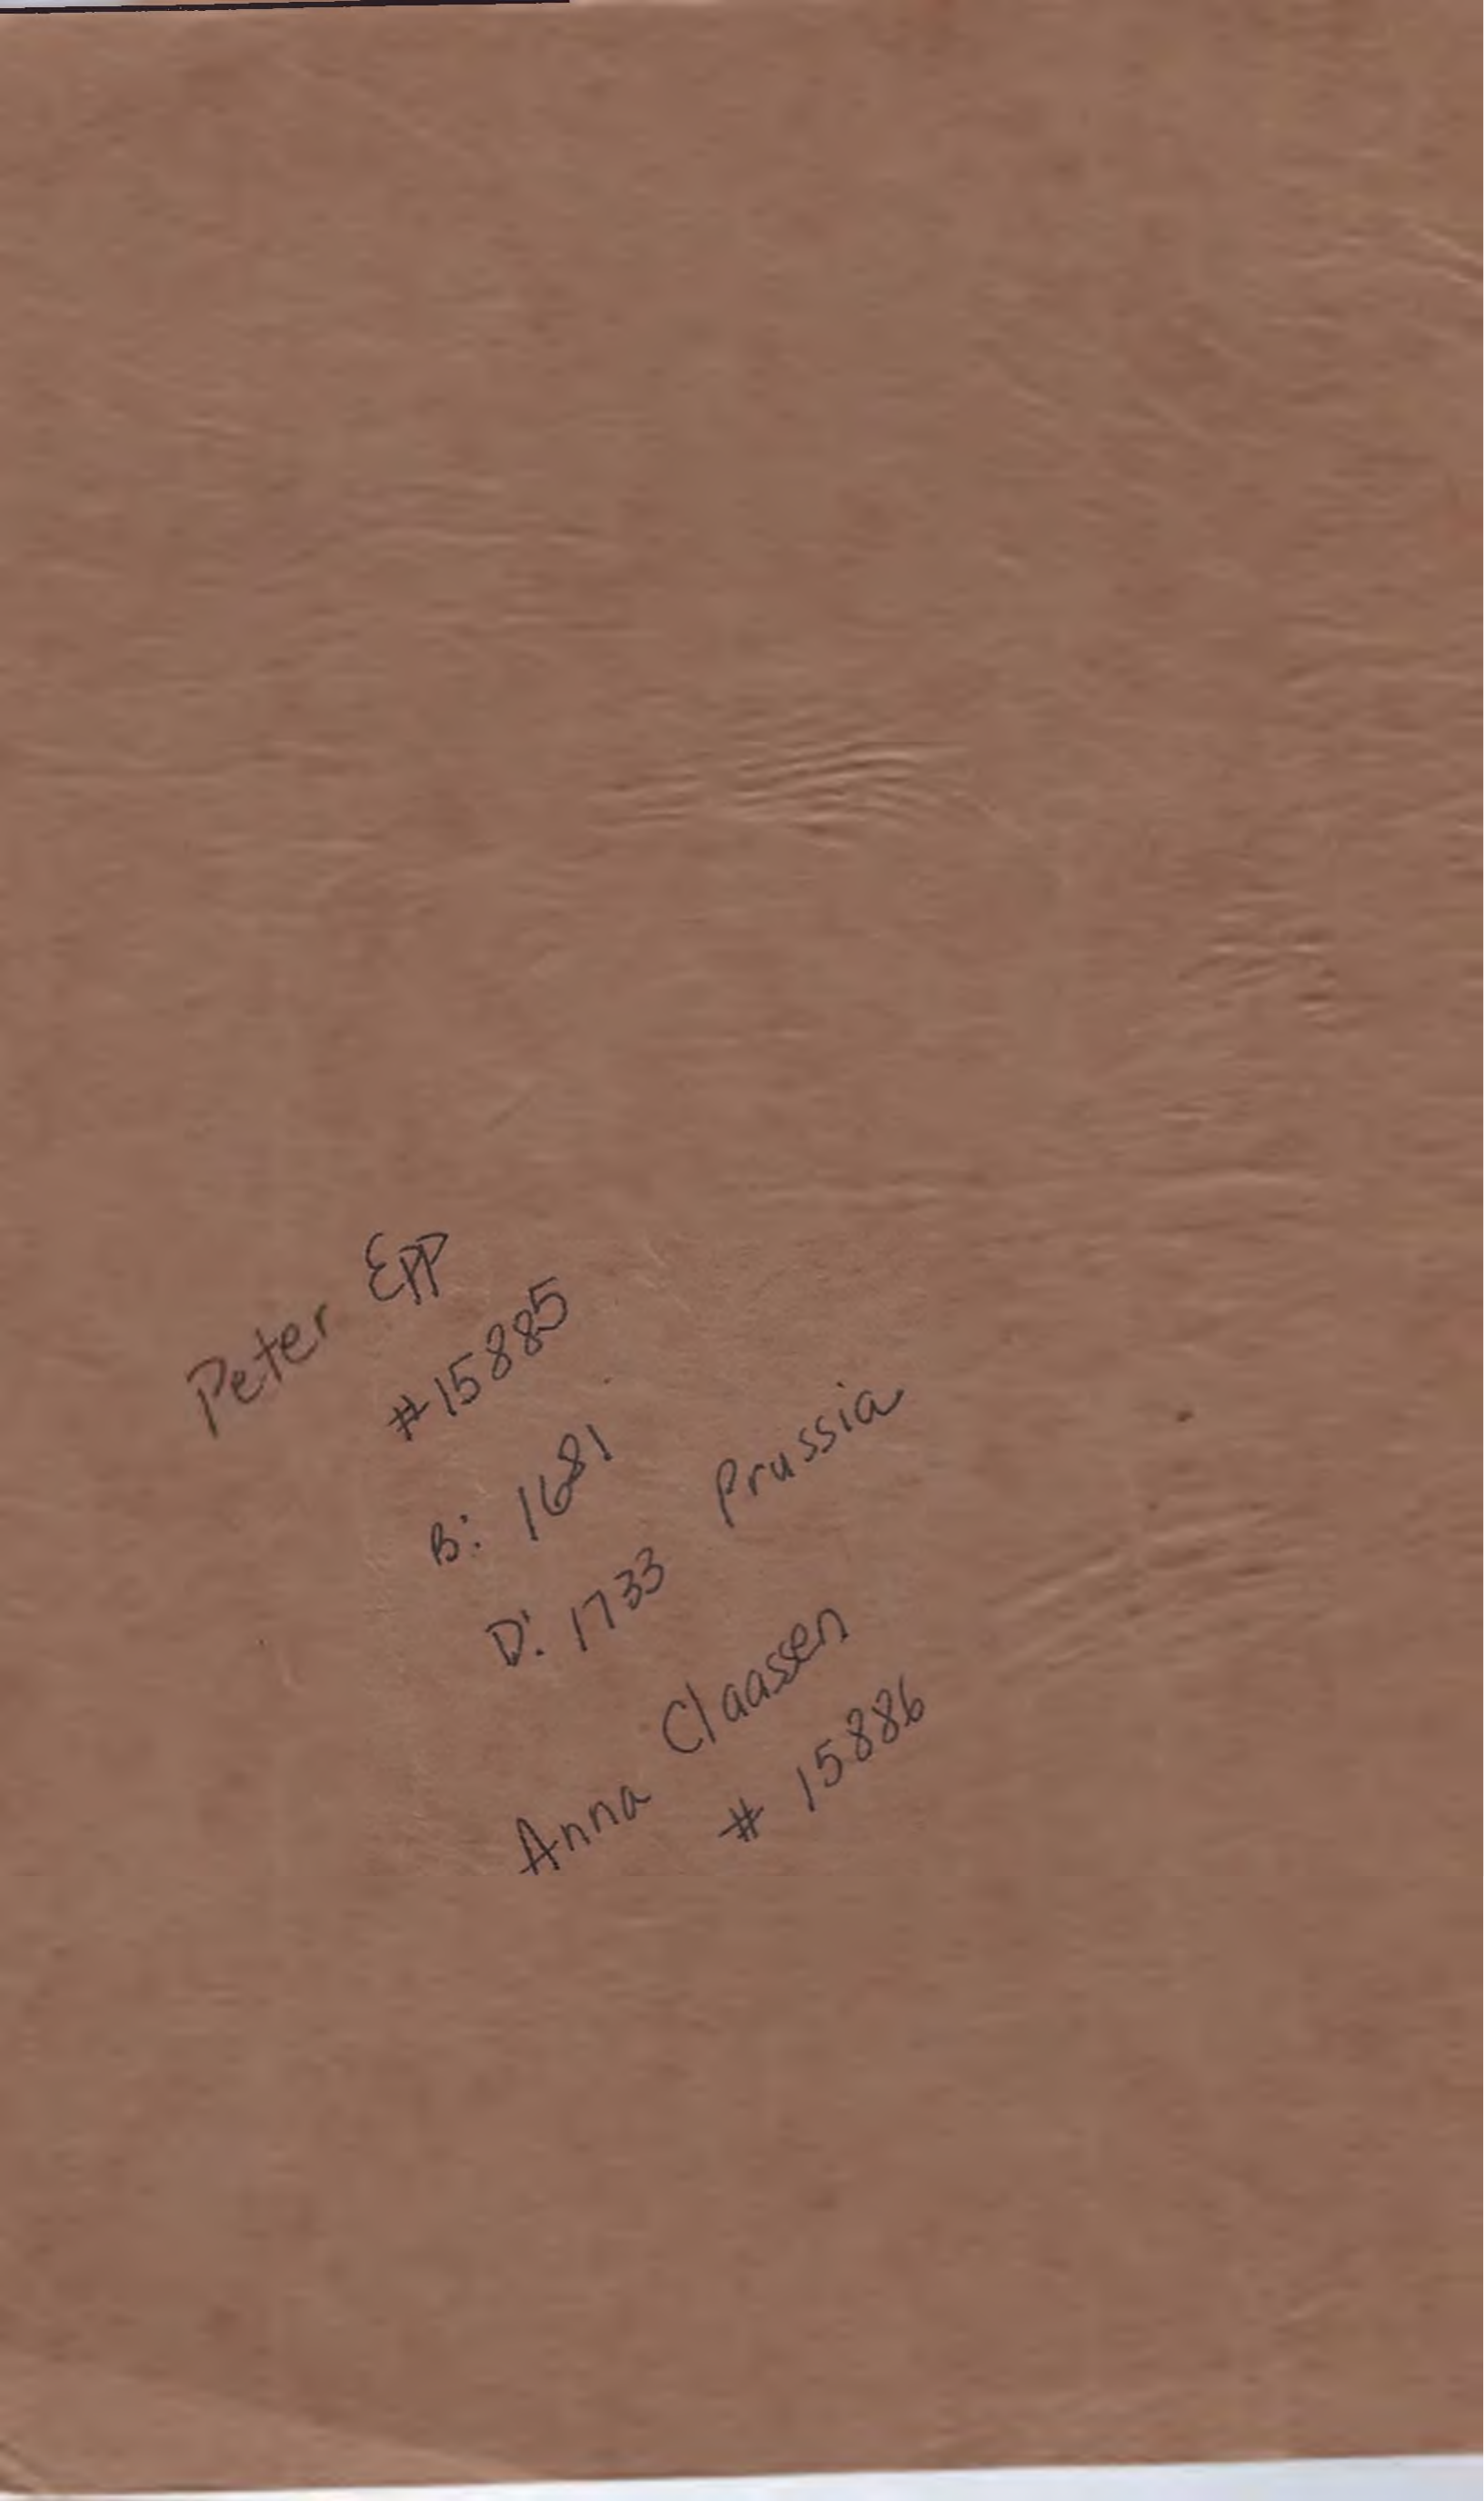 Peter Epp
#15885
B: 1681
D: 1733 Prussia
Anna Claassen
# 15886